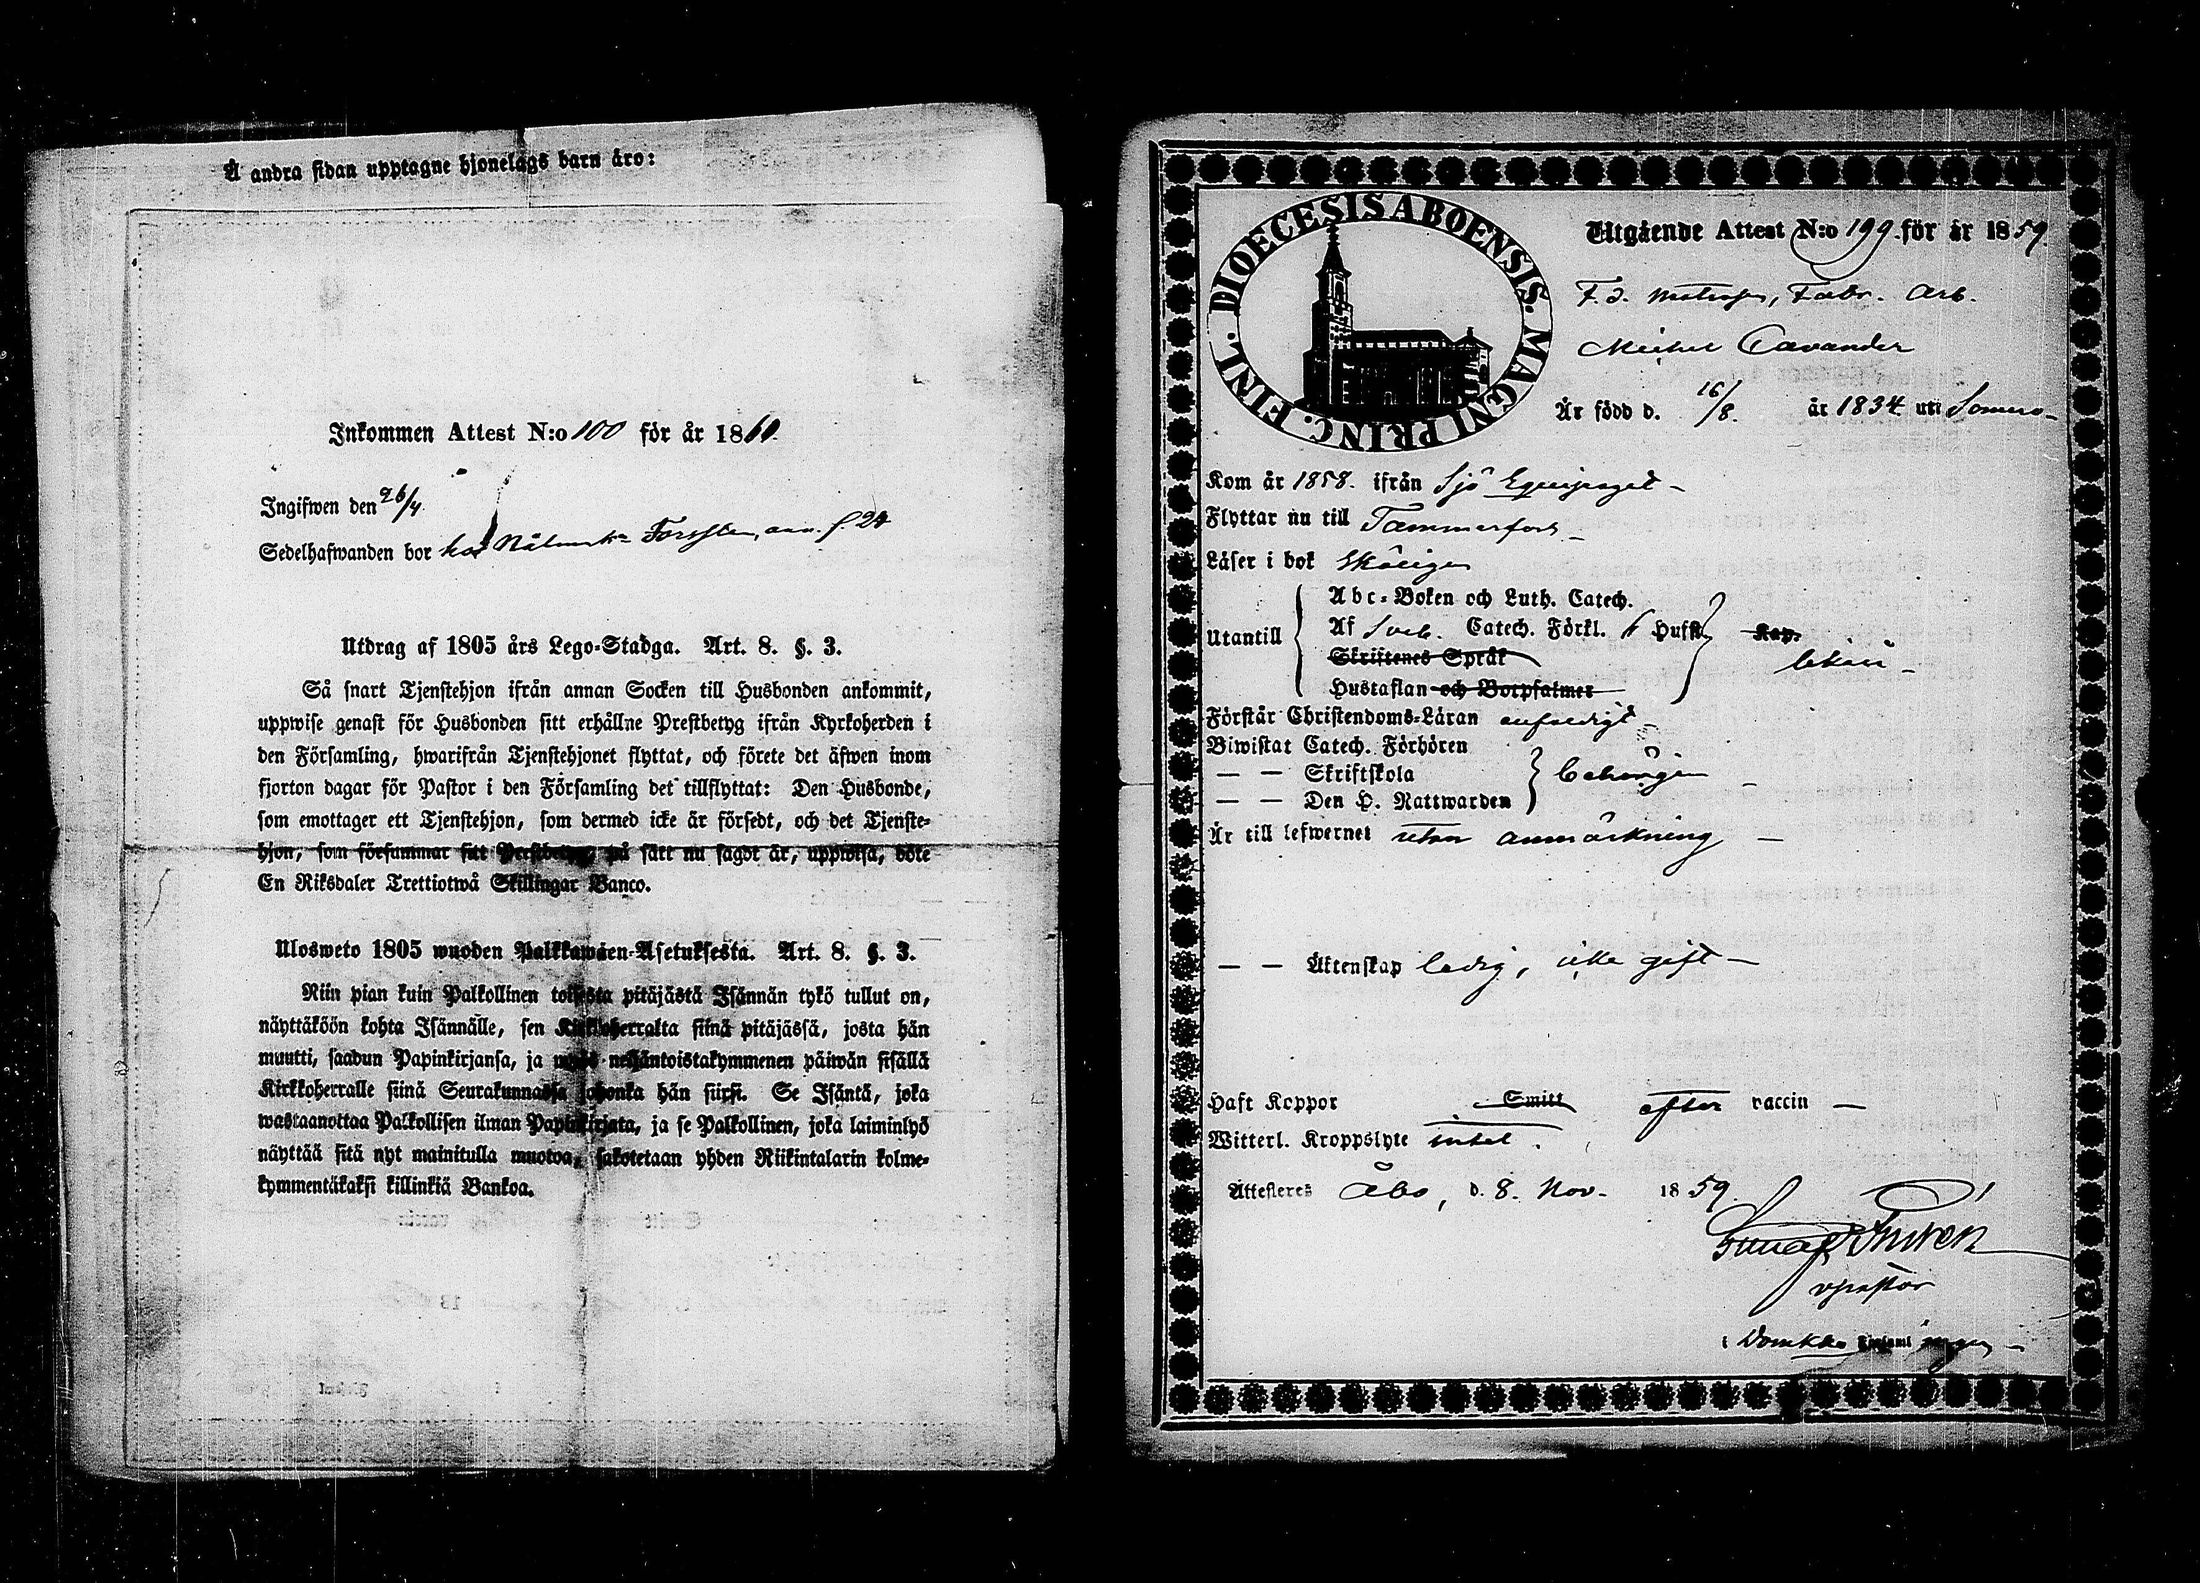 Å andra sidan upptagne hjonelags barn äro:
Inkommen Attest N:o 100 för år 1860.
Ingifwen den 26/4.
Sedelhafwanden bor hos Forssten, s. 24
Utdrag af 1805 års Lego-Stadga. Art. 8. §. 3.
Så snart Tjenstehjon ifrån annan Socken till Husbonden ankommit,
uppwise genast för Husbonden sitt erhållne Prestbetyg ifrån Kyrkoherden i
den Församling, hwarifrån Tjenstehjonet flyttat, och förete det äfwen inom
fjorton dagar för Pastor i den Församling det tillflyttat: Den Husbonde,
som emottager ett Tjenstehjon, som dermed icke är försedt, och det Tjenste-
hjon, som försummar sitt Prestbetyg, på sätt nu sagdt är, uppwisa, böte
En Riksdaler Trettiotwå Skillingar Banco.
Ulosweto 1805 wuoden Palkkawäen-Asetuksesta. Art. 8. §. 3.
Niin pian kuin Palkollinen toisesta pitäjästä Isännän tykö tullut on,
näyttäköön kohta Isännälle, sen Kirkkoherralta siinä pitäjässä, josta hän
muutti, saadun Papinkirjansa, ja myös neljäntoistakymmenen päiwän sisällä
Kirkkoherralle siinä Seurakunnassa johonka hän siirsi. Se Isäntä, joka
wastaanottaa Palkollisen ilman Papinkirjata, ja se Palkollinen, joka laiminlyö
näyttää sitä nyt mainitulla muotoa, sakotetaan yhden Riikintalarin kolme-
kymmentäkaksi killinkiä Bankoa.
DIOECESIS ABOENSIS. MAGNI PRINC. FINL.
Utgående Attest N:o 199. för år 1859.
F. d. Matrosen, Fabr. Arb.
Michel Cavander
Är född d. 16/8. år 1834 uti Somero-
Kom år 1858. ifrån Sjö Equipaget -
Flyttar nu till Tammerfors -
Läser i bok Skäligen
Utantill
Abc-Boken och Luth. Catech.
Af Sveb. Catech. Förkl. 6 Hufst. Kap.
Skriftenes Språk
Hustaflan och Botpsalmer
Förstår Christendoms-Läran enfaldigt -
Biwistat Catech. Förhören
— — Skriftskola behörigen -
— — Den H. Nattwarden
Är till lefwernet utan anmärkning -
— — Äktenskap ledig, icke gift -
Haft Koppor Smitt efter vaccin -
Witterl. Kroppslyte intet.
Attesteres Åbo, d. 8. Nov. 1859.
v pastor
i Domkyrko Församlingen -